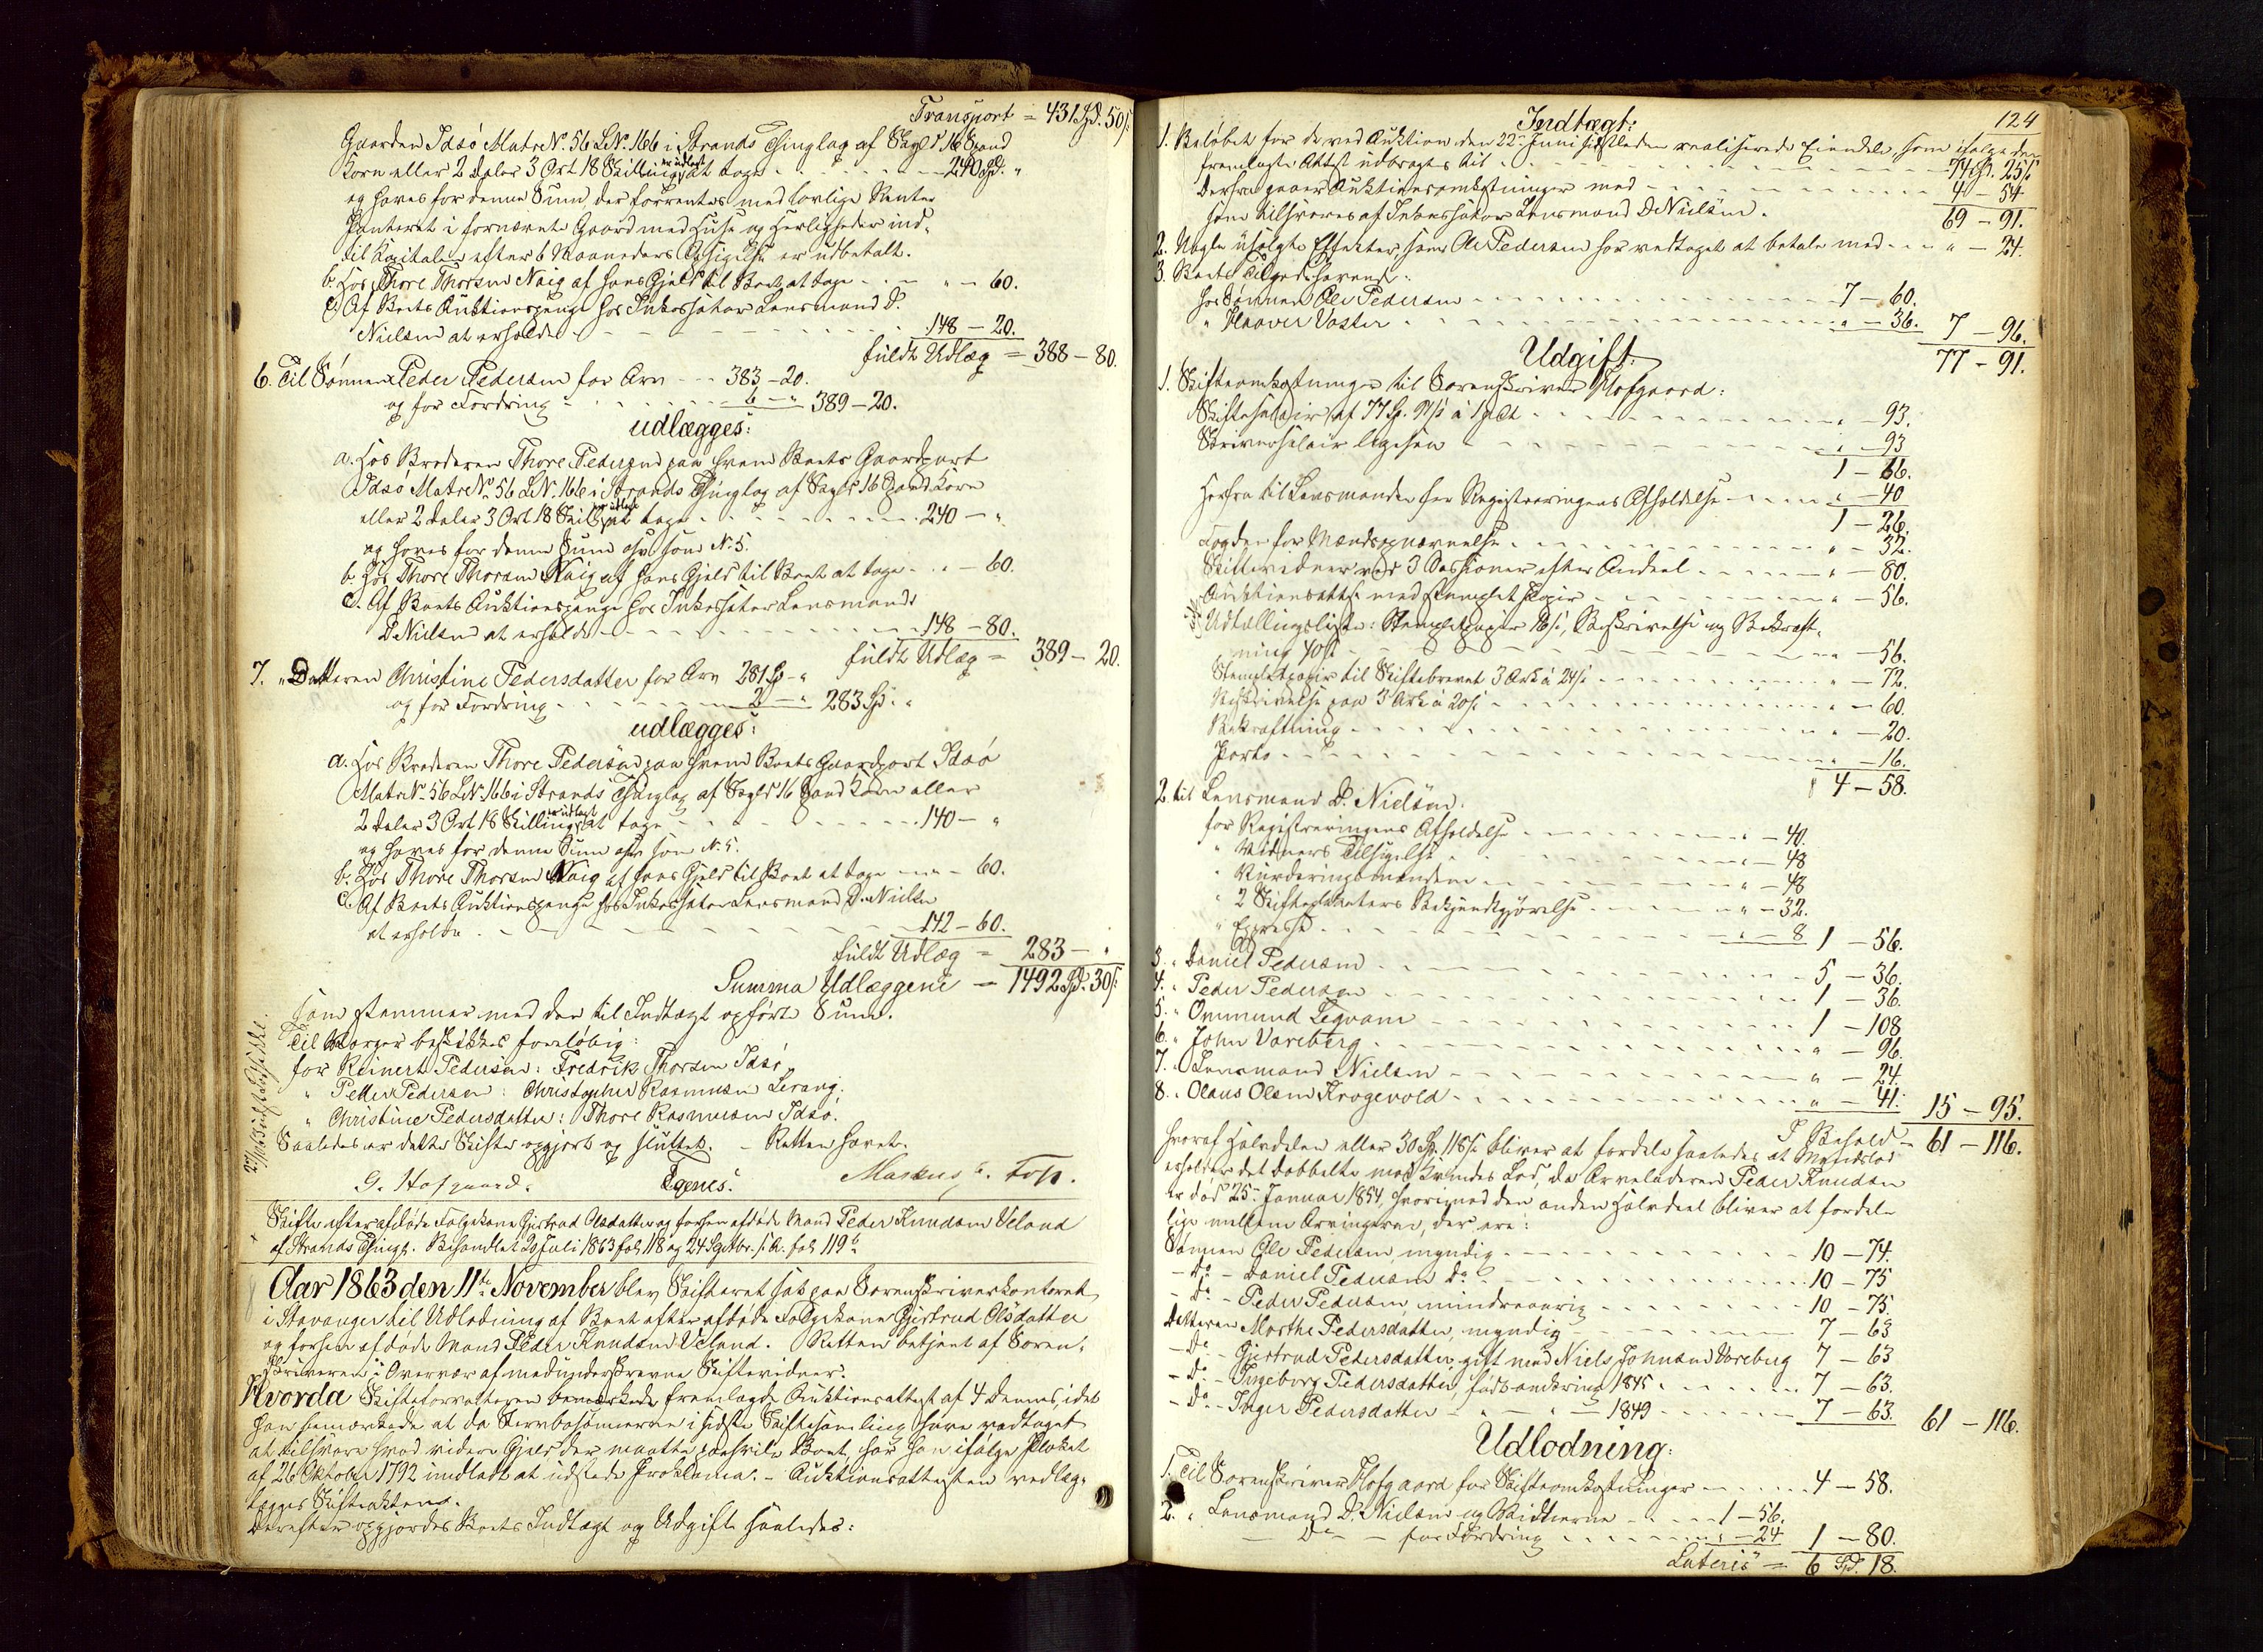 Transport = 431 Spd. 50 s.
Gaarden Idsø Matr.No. 56 L.No. 166 i Strands Thinglag af Skyld 16 Spand
Korn eller 2 Daler 3 Ort 18 Skilling er udlagt at tage - - - 240 Spd. "
og haves for denne Sum, der forrentes med lovlige Renter
Panteret i fornævnte Gaard med Huse og Herligheder ind-
til Kapitalen efter 6 Maaneders Opsigelse er udbetalt.
b. Hos Thore Thorsen Naig af hans Gjeld til Boet at tage - - " - 60.
c) Af Boets Auktionspenge hos Inkassator Lensmand D.
Nielsen at erholde - - - 148 - 20.
fuldt Udlæg = 388 - 80.
6. Til Sønnen Peder Pedersen for Arv - - 383 - 20.
og for Fordring - - - 6 - " 389 - 20.
udlægges:
a. Hos Broderen Thore Pedersen paa hvem Boets Gaardpart
Idsø Matr No. 56 L.N. 166 i Strands Thinglag af Skyld 16 Spand Korn
eller 2 Daler 3 Ort 18 Skill. er udlagt at tage - - - 240 - "
og haves for denne Sum osv. som No. 5.
b. Hos Thore Thorsen Naig af hans Gjeld til Boet at tage - - " - 60.
c. Af Boets Auktionspenge hos Inkassator Lensmand
D Nielsen at erholde - - - 148 - 80.
fuldt Udlæg = 389 - 20.
7. " Datteren Christine Pedersdatter for Arv 281 Sp - "
og for Fordring - - - 2 - " 283 Sp. "
udlægges:
a. Hos Broderen Thore Pedersen paa hvem Boets Gaardpart Idsø
Matr.No. 56 L.N. 166 i Strands Thinglag af Skyld 16 Spand Korn eller
2 Daler 3 Ort 18 Skilling er udlagt at tage - - - 140 - "
og haves for denne Sum osv. som N. 5.
b. Hos Thore Thorsen Naig af hans Gjeld til Boet at tage - " - 60.
c. Af Boets Auktionspenge hos Inkassator Lensmand D. Nielsen
at erholde - - - 142 - 60.
fuldt Udlæg = 283 - "
Summa Udlæggene = 1492 Spd. 30 s.
som stemmer med den til Indtægt opførte Sum.
Til Værger beskikkes foreløbig:
for Reinert Pedersen: Fredrik Thorsen Idsø,
" Petter Pedersen: Christopher Rasmusen Lerang.
" Christine Pedersdatter: Thore Rasmusen Idsø.
Saaledes er dette Skifte opgjort og sluttet. - Retten hævet.
G. Hofgaard. Egenes. Markus
Skifte efter afdøde Folgekone Gjertrud Olsdatter og forhen afdøde Mand Peder Knudsen Veland
af Strands Thingl. Behandlet 20 Juli 1863 fol 118 og 24 Septbr. s. A. fol 119 b
Aar 1863 den 11te November blev Skifteret sat paa Sorenskriverkontoret
i Stavanger til Udlodning af Boet efter afdøde Folgekone Gjertrud Olsdatter
og forhen afdøde Mand Peder Knudsen Veland. Retten betjent af Soren-
skriveren i Overvær af medunderskrevne Skiftevidner.
Hvorda Skifteforvalteren bemærkede fremlagde Auktionsattest af 4 dennes, idet
han bemærkede at da Stervbosønnerne i sidste Skiftesamling have vedtaget
at tilsvare hvad videre Gjeld der maatte paahvile Boet, har han ifølge Plakat
af 26 Oktober 1792 undladt at udstede Proklama. - Auktionsattesten vedlæg-
lægges Skifteakterne.
Derefter opgjordes Boets Indtægt og Udgift saaledes:
124
Indtægt:
1. Beløbet for de ved Auktion den 22de Juni sidstleden realiserede Eiendele, som ifølge den
fremlagte Attest udbragtes til - - - 74 Spd. 25 s.
Derfra gaaer Auktionsomkostninger med - - - 4 - 54
som tilsvares af Inkassator Lensmand D Nielsen. 69 - 91.
2. Nogle usolgte Effekter, som Ole Pedersen har vedtaget at betale med - - " - 24.
3. Boets Tilgodehavende:
hos Sønnen Ole Pedersen - - - 7 - 60.
" Haaver Vaster - - - " - 36. 7 - 96.
77 - 91.
Udgift.
1. Skifteomkostninger til Sorenskriver Hofgaard:
Skiftesalair af 77 Sp. 91 s à 1 pCt - - - " - 93.
Skriversalair ligesaa - - - " - 93
1 - 66.
Herfra til Lensmanden for Registreringens Afholdelse - - - " - 40
1 - 26.
Fogden for Mændsopnævnelse - - - " - 32.
Skiftevidner ved 3 Sessioner efter Andeel - - - " - 80.
Auktionsattest med stemplet Papir - - - " - 56.
Udtællingsliste: Stempletpapir 16 s, Beskrivelse og Bekræft-
ning 40 s - - - " - 56.
Stempletpapir til Skiftebrevet 3 Ark à 24 s - - - " - 72.
Beskrivelse paa 3 Ark à 20 s - - - " - 60.
Bekræftning - - - " - 20.
Porto - - - " - 16.
4 - 58.
2. til Lensmand D. Nielsen.
for Registreringens Afholdelse - - - " - 40.
" Vidners Tilsigelse - - - " - 48
" Vurderingsmændene - - - " - 48
" 2 Skifteplakaters Bekjendtgjørelse - - - " - 32.
" Expresse - - - " - 8 1 - 56.
3. " Daniel Pedersen - - - 5 - 36.
4. " Peder Pedersen - - - 1 - 36.
5. " Ommund Tegvam - - - 1 - 108
6. " John Vareberg - - - " - 96.
7. " Lensmand Nielsen - - - " - 24.
8. " Olaus Olsen Krogevold - - - " - 41. 15 - 95.
I Behold - 61 - 116.
hvoraf Halvdelen eller 30 Sp. 118 s bliver at fordele saaledes at Mandslod
erholder det dobbelte mod Kvindes Lod, da Arveladeren Peder Knudsen
er død 25de Januar 1854, hvorimod den anden Halvdeel bliver at fordele
lige mellem Arvingerne, der ere:
Sønnen Ole Pedersen, myndig - - - 10 - 74.
- Do - Daniel Pedersen Do - - - 10 - 75
- Do - Peder Pedersen, mindreaarig - - - 10 - 75.
Datteren Marthe Pedersdatter, myndig - - - 7 - 63
- Do - Gjertrud Pedersdatter, gift med Niels Johnsen Vareberg 7 - 63
- Do - Ingeborg Pedersdatter, født omkring 1845 - - - 7 - 63.
- Do - Inger Pedersdatter - " - " - 1849 - - - 7 - 63. 61 - 116.
Udlodning:
1. Til Sorenskriver Hofgaard for Skifteomkostninger - - - 4 - 58.
2. " Lensmand D. Nielsen og Vidnerne - - - 1 - 56.
- Do - for Fordring - - - " - 24 1 - 80.
Lateris = 6 Spd. 18.